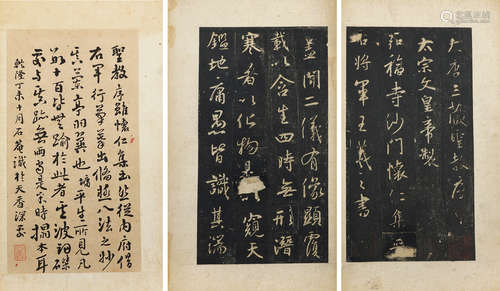 大唐三藏聖教序
太宗文皇帝製
弘福寺沙門懷仁集晉
右將軍王羲之書
蓋聞二儀有像顯覆
載以含生四時無形潛
寒暑以化物是以窺天
鑑地庸愚皆識其端
聖教序雖懷仁集出然從內府借
右軍行草書出臨八法之妙
蘭亭羽翼也墉平生所見凡
數十百皆無踰於此者至波翔磔
與真跡無當是宋時搨本耳
乾隆丁未十月石庵識於天香深處